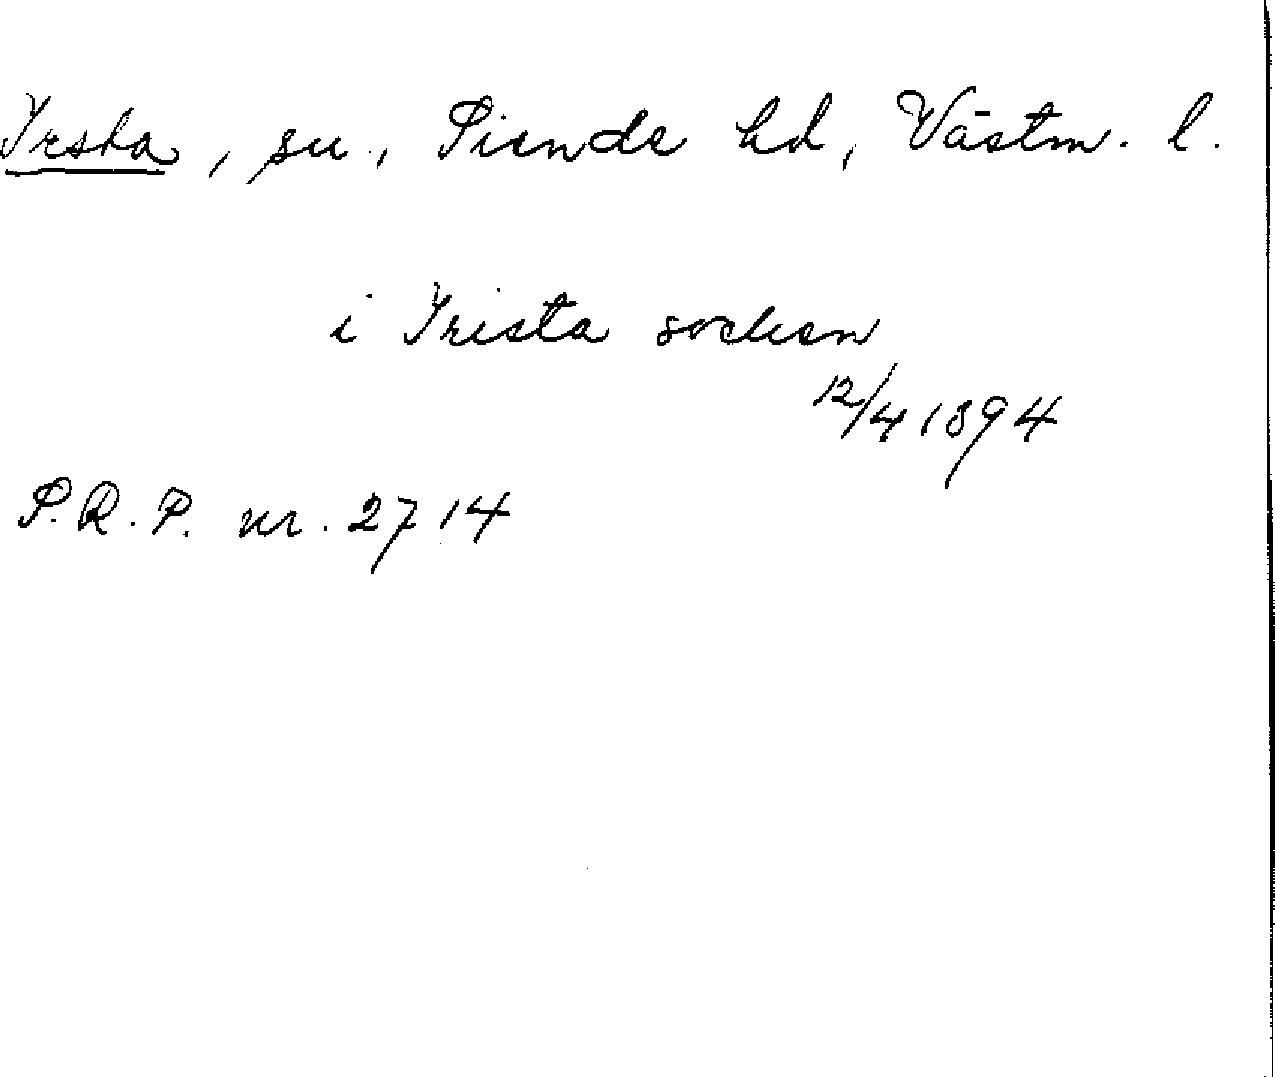 Irsta, sn, Siende hd, Västm. l.
i Irista socken
12/4 1394
S.R.P. nr. 2714